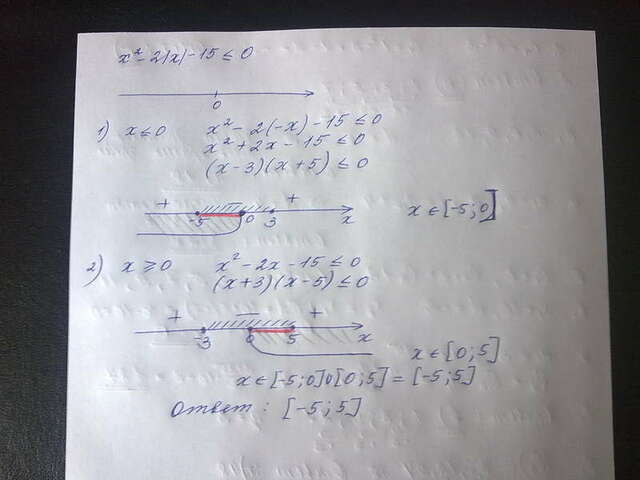 x² - 2|x| - 15 ≤ 0
0
1) x ≤ 0 x² - 2(-x) - 15 ≤ 0
x² + 2x - 15 ≤ 0
(x-3)(x+5) ≤ 0
+ − +
-5 0 3 x x ∈ [-5; 0]
2) x ≥ 0 x² - 2x - 15 ≤ 0
(x+3)(x-5) ≤ 0
+ − +
-3 0 5 x
x ∈ [0; 5]
x ∈ [-5; 0] ∪ [0; 5] = [-5; 5]
Ответ: [-5; 5]